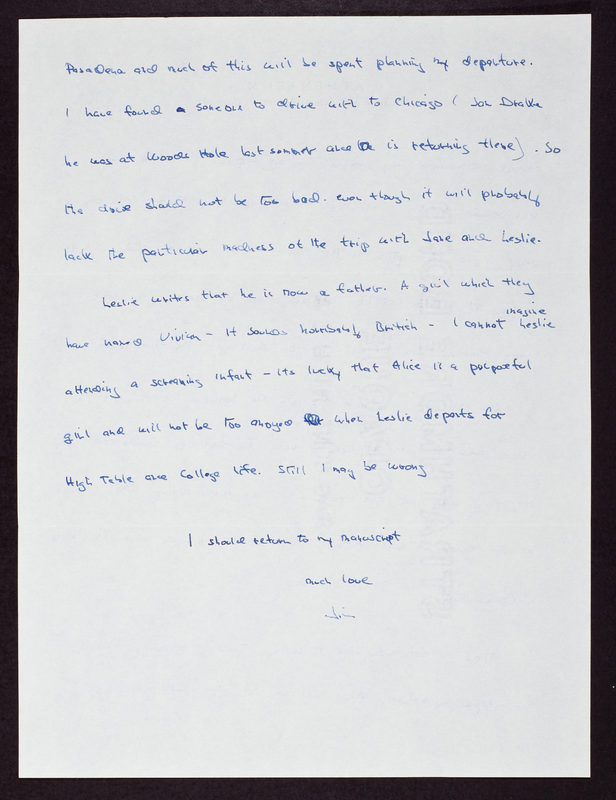 Pasadena and much of this will be spent planning my departure.
I have found a someone to drive with to Chicago ( Jon Drake
he was at Woods Hole last summer and is returning there) . So
the drive should not be too bad. even though it will probably
lack the particular madness of the trip with Jane and Leslie.
Leslie writes that he is now a father. A girl which they
imagine
have named Vivien - It sounds horribly British - I cannot Leslie
attending a screaming infant - its lucky that Alice is a purposeful
girl and will not be too anoyed when Leslie departs for
High Table and College life. Still I may be wrong
I should return to my manuscript
much love
Jim